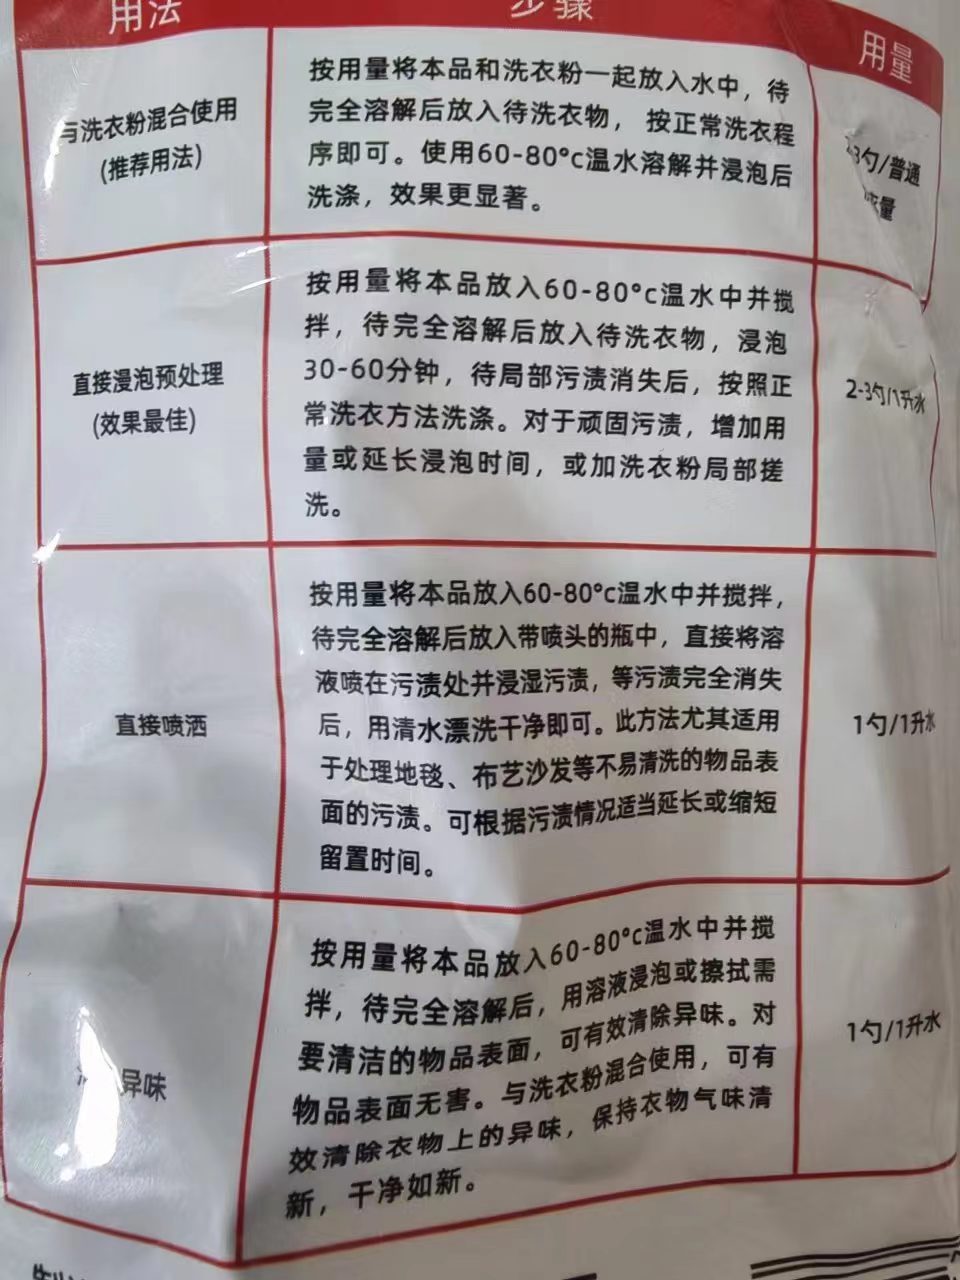 用法
步骤
用量
与洗衣粉混合使用
(推荐用法)
按用量将本品和洗衣粉一起放入水中，待
完全溶解后放入待洗衣物，按正常洗衣程
序即可。使用60-80°c温水溶解并浸泡后
洗涤，效果更显著。
3勺/普通
衣量
直接浸泡预处理
(效果最佳)
按用量将本品放入60-80°c温水中并搅
拌，待完全溶解后放入待洗衣物，浸泡
30-60分钟，待局部污渍消失后，按照正
常洗衣方法洗涤。对于顽固污渍，增加用
量或延长浸泡时间，或加洗衣粉局部搓
洗。
2-3勺/1升水
直接喷洒
按用量将本品放入60-80°c温水中并搅拌，
待完全溶解后放入带喷头的瓶中，直接将溶
液喷在污渍处并浸湿污渍，等污渍完全消失
后，用清水漂洗干净即可。此方法尤其适用
于处理地毯、布艺沙发等不易清洗的物品表
面的污渍。可根据污渍情况适当延长或缩短
留置时间。
1勺/1升水
异味
按用量将本品放入60-80°c温水中并搅
拌，待完全溶解后，用溶液浸泡或擦拭需
要清洁的物品表面，可有效清除异味。对
物品表面无害。与洗衣粉混合使用，可有
效清除衣物上的异味，保持衣物气味清
新，干净如新。
1勺/1升水